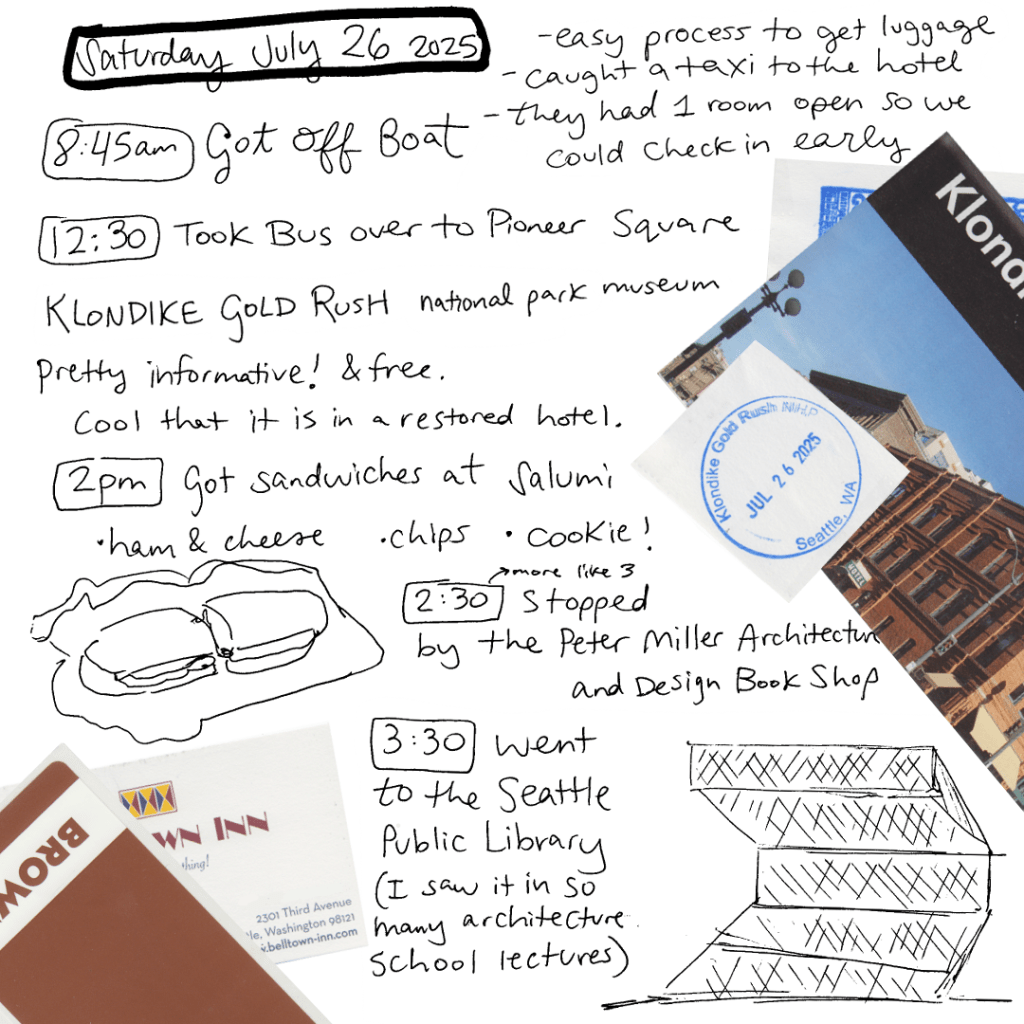 Saturday July 26 2025
- easy process to get luggage
- caught a taxi to the hotel
- they had 1 room open so we
could check in early
8:45am Got off Boat
12:30 Took Bus over to Pioneer Square
KLONDIKE GOLD RUSH national park museum
Pretty informative! & free.
Cool that it is in a restored hotel.
2pm Got sandwiches at Salumi
•ham & cheese •chips • cookie!
→more like 3
2:30 Stopped
by the Peter Miller Architectur
and Design Book Shop
3:30 Went
to the Seattle
Public Library
(I saw it in so
many architecture
school lectures)
Klond
Klondike Gold Rush NHP
JUL 26 2025
Seattle, WA
HOTEL
BROW
WN INN
thing!
2301 Third Avenue
le, Washington 98121
w.belltown-inn.com